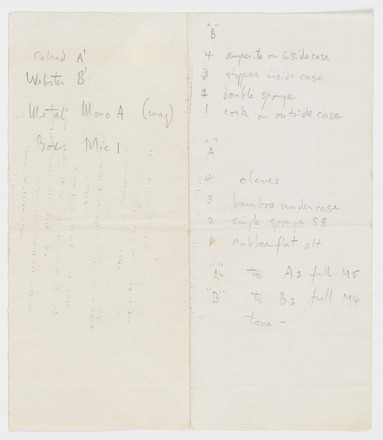 A'
Webster B'
Metal Mono A (mag)
Box Mic 1
"B"
4 on inside case
3 inside case
2 double sponge
1 cork on outside case
"A"
4 claves
3 bamboo under case
2 single sponge SB
1 rubber flat
"A" to A3 full M5
"B" to B3 full M4
tone –